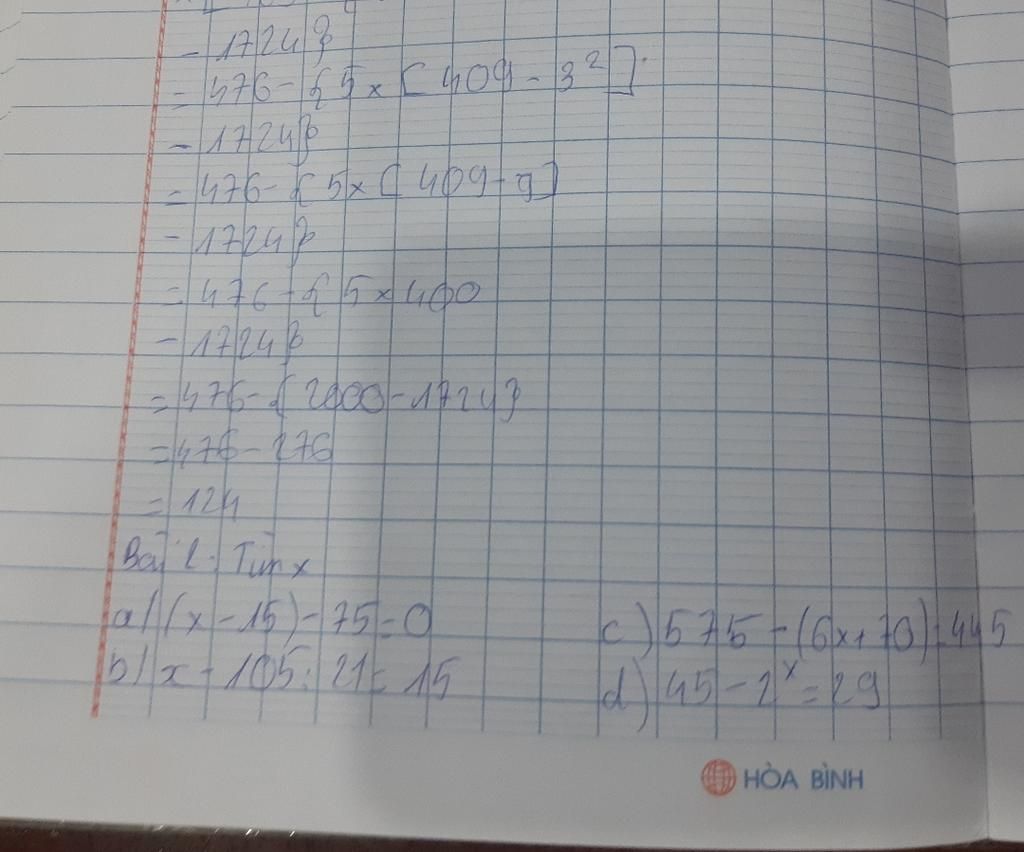 - 1724}
= 476 - {5 x [409 - 3²]
- 1724}
= 476 - {5 x [409 - 9]
- 1724}
= 476 - {5 x 400
- 1724}
= 476 - {2000 - 1724}
= 476 - 276
= 124
Bài 2: Tìm x
a) (x - 15) - 75 = 0
b) x - 105 : 21 = 15
c) 575 - (6x + 70) = 445
d) 45 - 2ˣ = 29
HÒA BÌNH